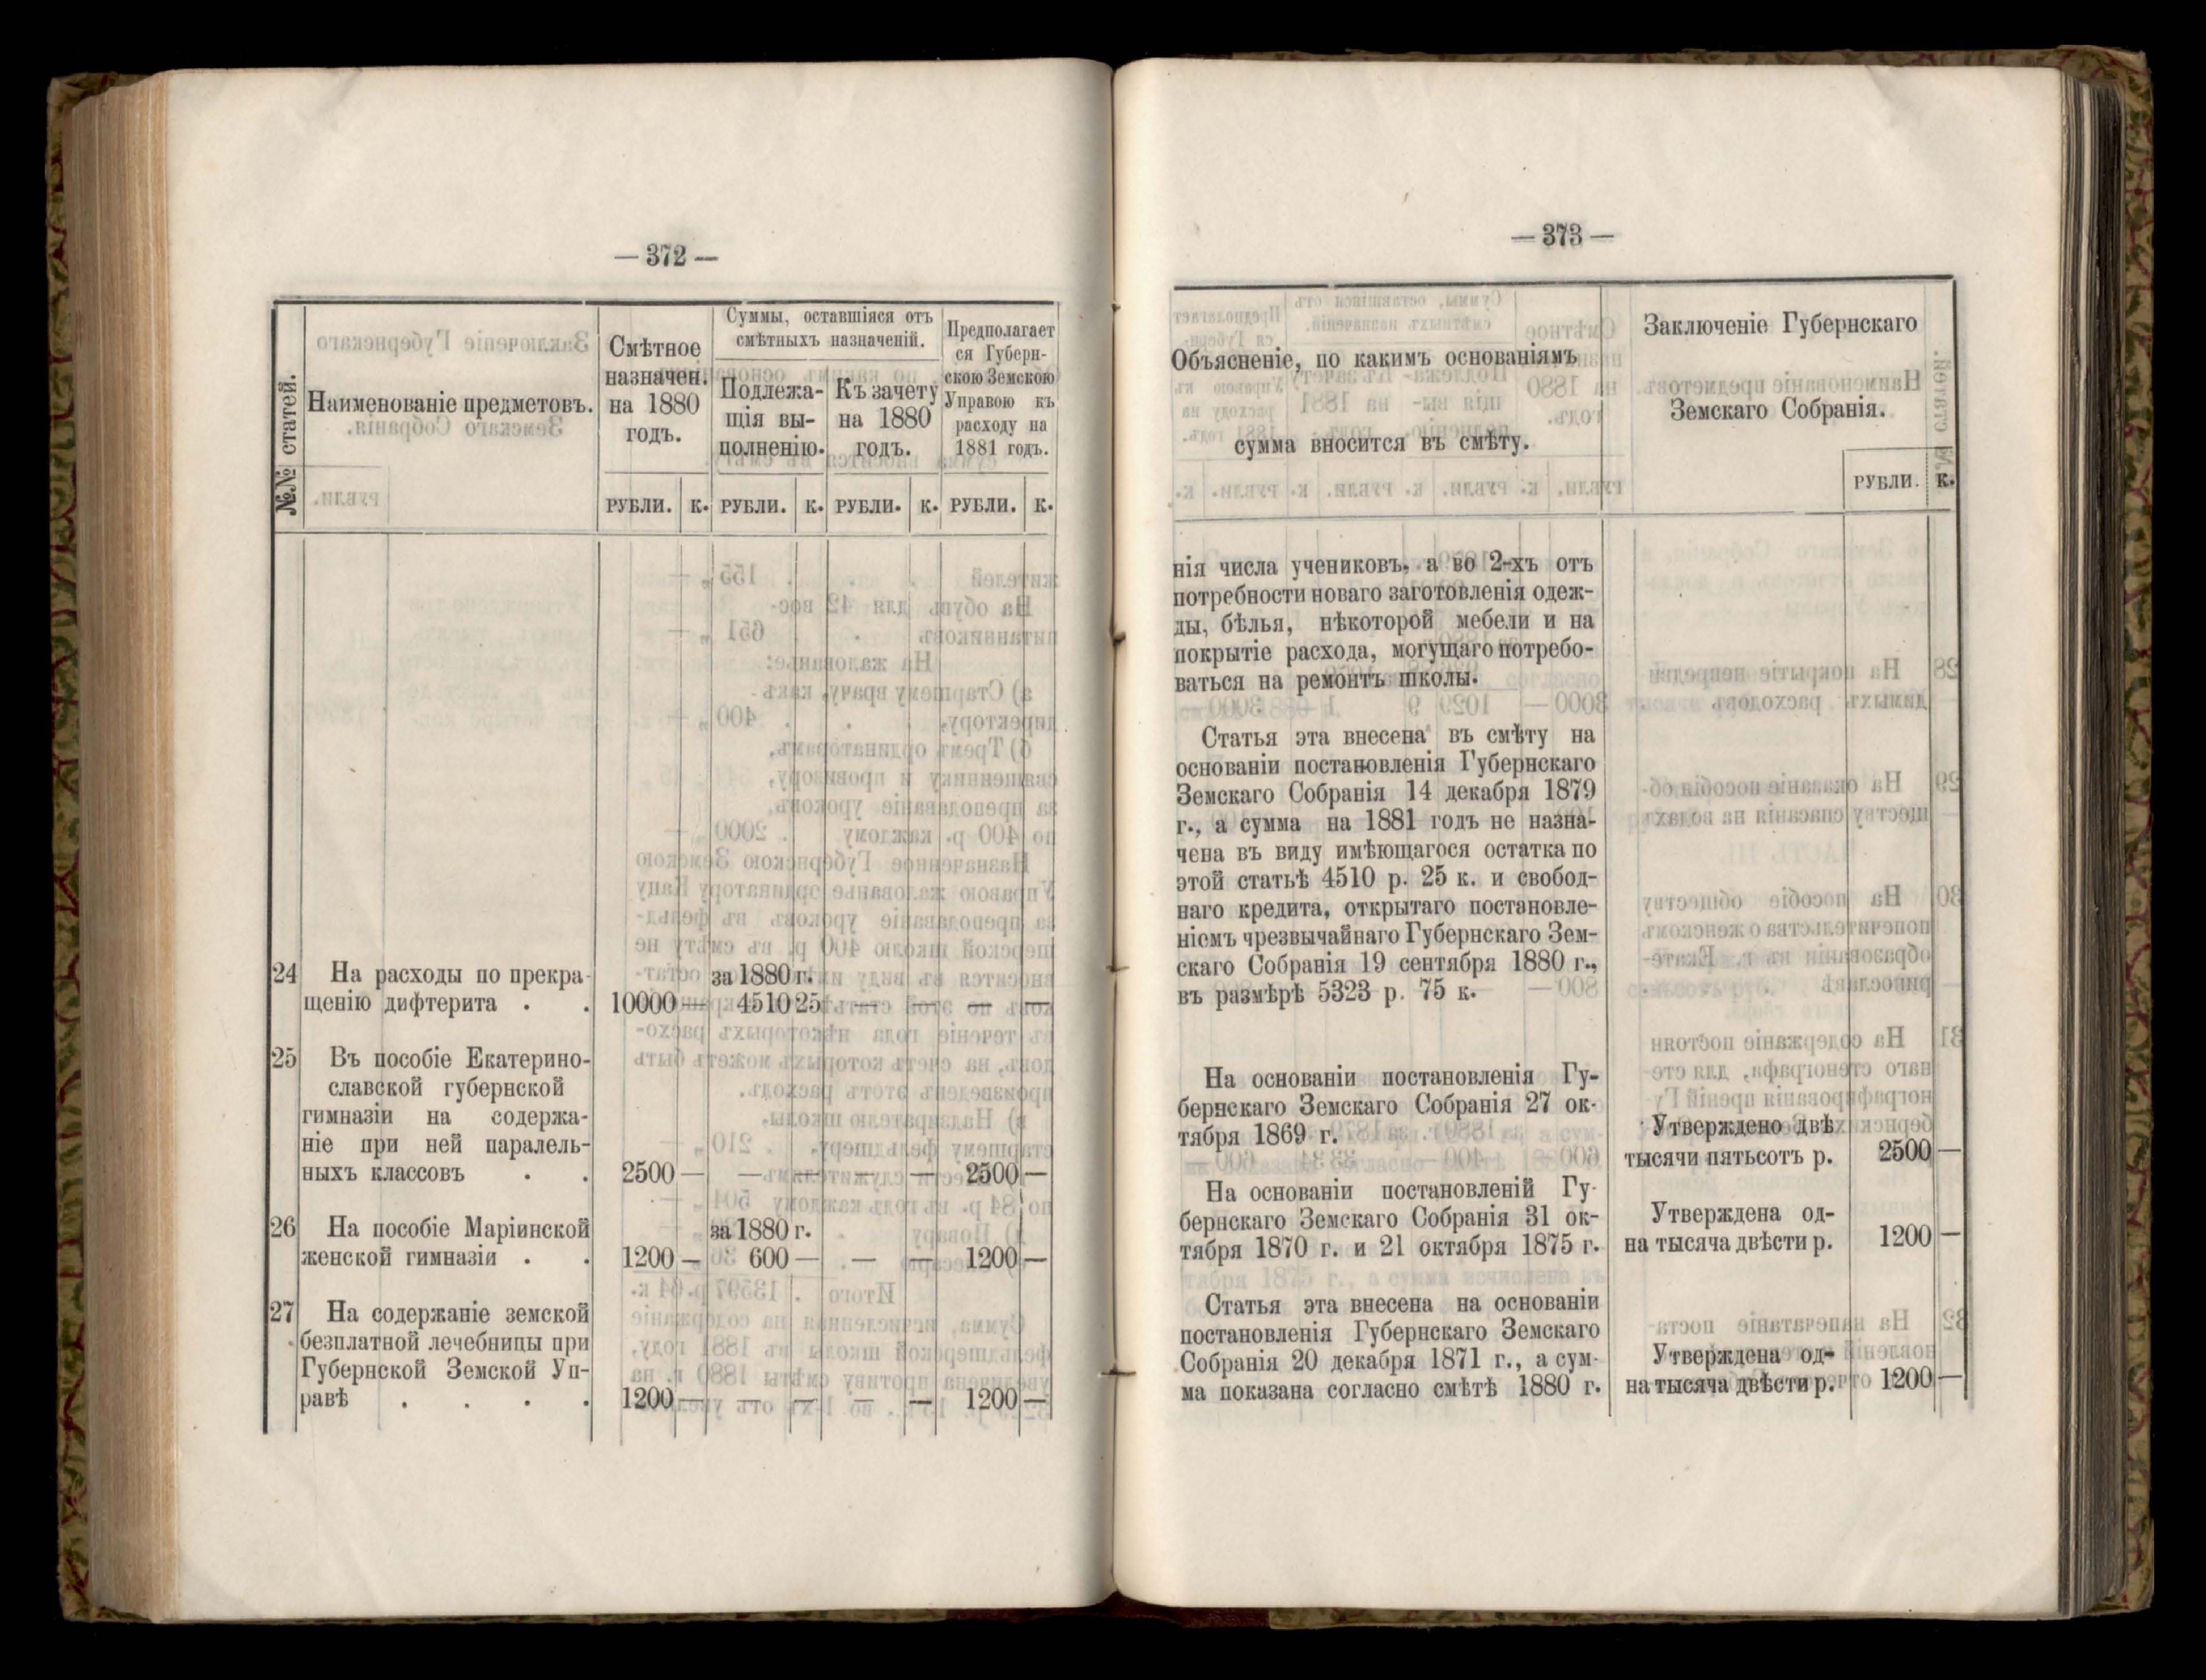 — 372 —
№№ статей.
Наименованіе предметовъ.
Смѣтное
назначен.
на 1880
годъ.
Суммы, оставшіяся отъ
смѣтныхъ назначеній.
Подлежа-
щія вы-
полненію.
Къ зачету
на 1880
годъ.
Предполагает
ся Губерн-
скою Земскою
Управою къ
расходу на
1881 годъ.
РУБЛИ. К. РУБЛИ. К. РУБЛИ. К. РУБЛИ. К.
24 На расходы по прекра- за 1880 г.
щенію дифтерита . . 10000 — 4510 25 — — — —
25 Въ пособіе Екатерино-
славской губернской
гимназіи на содержа-
ніе при ней паралель-
ныхъ классовъ . . 2500 — — — — — 2500 —
26 На пособіе Маріинской за 1880 г.
женской гимназіи . . 1200 — 600 — — — 1200 —
27 На содержаніе земской
безплатной лечебницы при
Губернской Земской Уп-
равѣ . . . . 1200 — — — — — 1200 —
— 373 —
Объясненіе, по какимъ основаніямъ
сумма вносится въ смѣту.
Заключеніе Губернскаго
Земскаго Собранія.
РУБЛИ. К.
нія числа учениковъ, а во 2-хъ отъ
потребности новаго заготовленія одеж-
ды, бѣлья, нѣкоторой мебели и на
покрытіе расхода, могущаго потребо-
ваться на ремонтъ школы.
Статья эта внесена въ смѣту на
основаніи постановленія Губернскаго
Земскаго Собранія 14 декабря 1879
г., а сумма на 1881 годъ не назна-
чена въ виду имѣющагося остатка по
этой статьѣ 4510 р. 25 к. и свобод-
наго кредита, открытаго постановле-
ніемъ чрезвычайнаго Губернскаго Зем-
скаго Собранія 19 сентября 1880 г.,
въ размѣрѣ 5323 р. 75 к.
На основаніи постановленія Гу-
бернскаго Земскаго Собранія 27 ок-
тября 1869 г.
Утверждено двѣ
тысячи пятьсотъ р. 2500 —
На основаніи постановленій Гу-
бернскаго Земскаго Собранія 31 ок-
тября 1870 г. и 21 октября 1875 г.
Утверждена од-
на тысяча двѣсти р. 1200 —
Статья эта внесена на основаніи
постановленія Губернскаго Земскаго
Собранія 20 декабря 1871 г., а сум-
ма показана согласно смѣтѣ 1880 г.
Утверждена од-
на тысяча двѣсти р. 1200 —